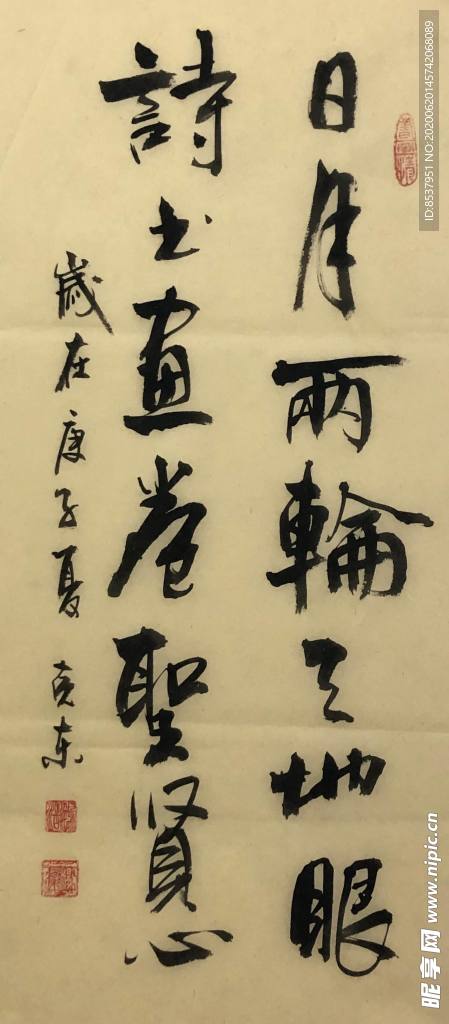 日月兩輪天地眼
詩书畫卷聖賢心
歲在庚子夏 克东
ID:8537951 NO:20200620145742068089
昵享网 www.nipic.cn